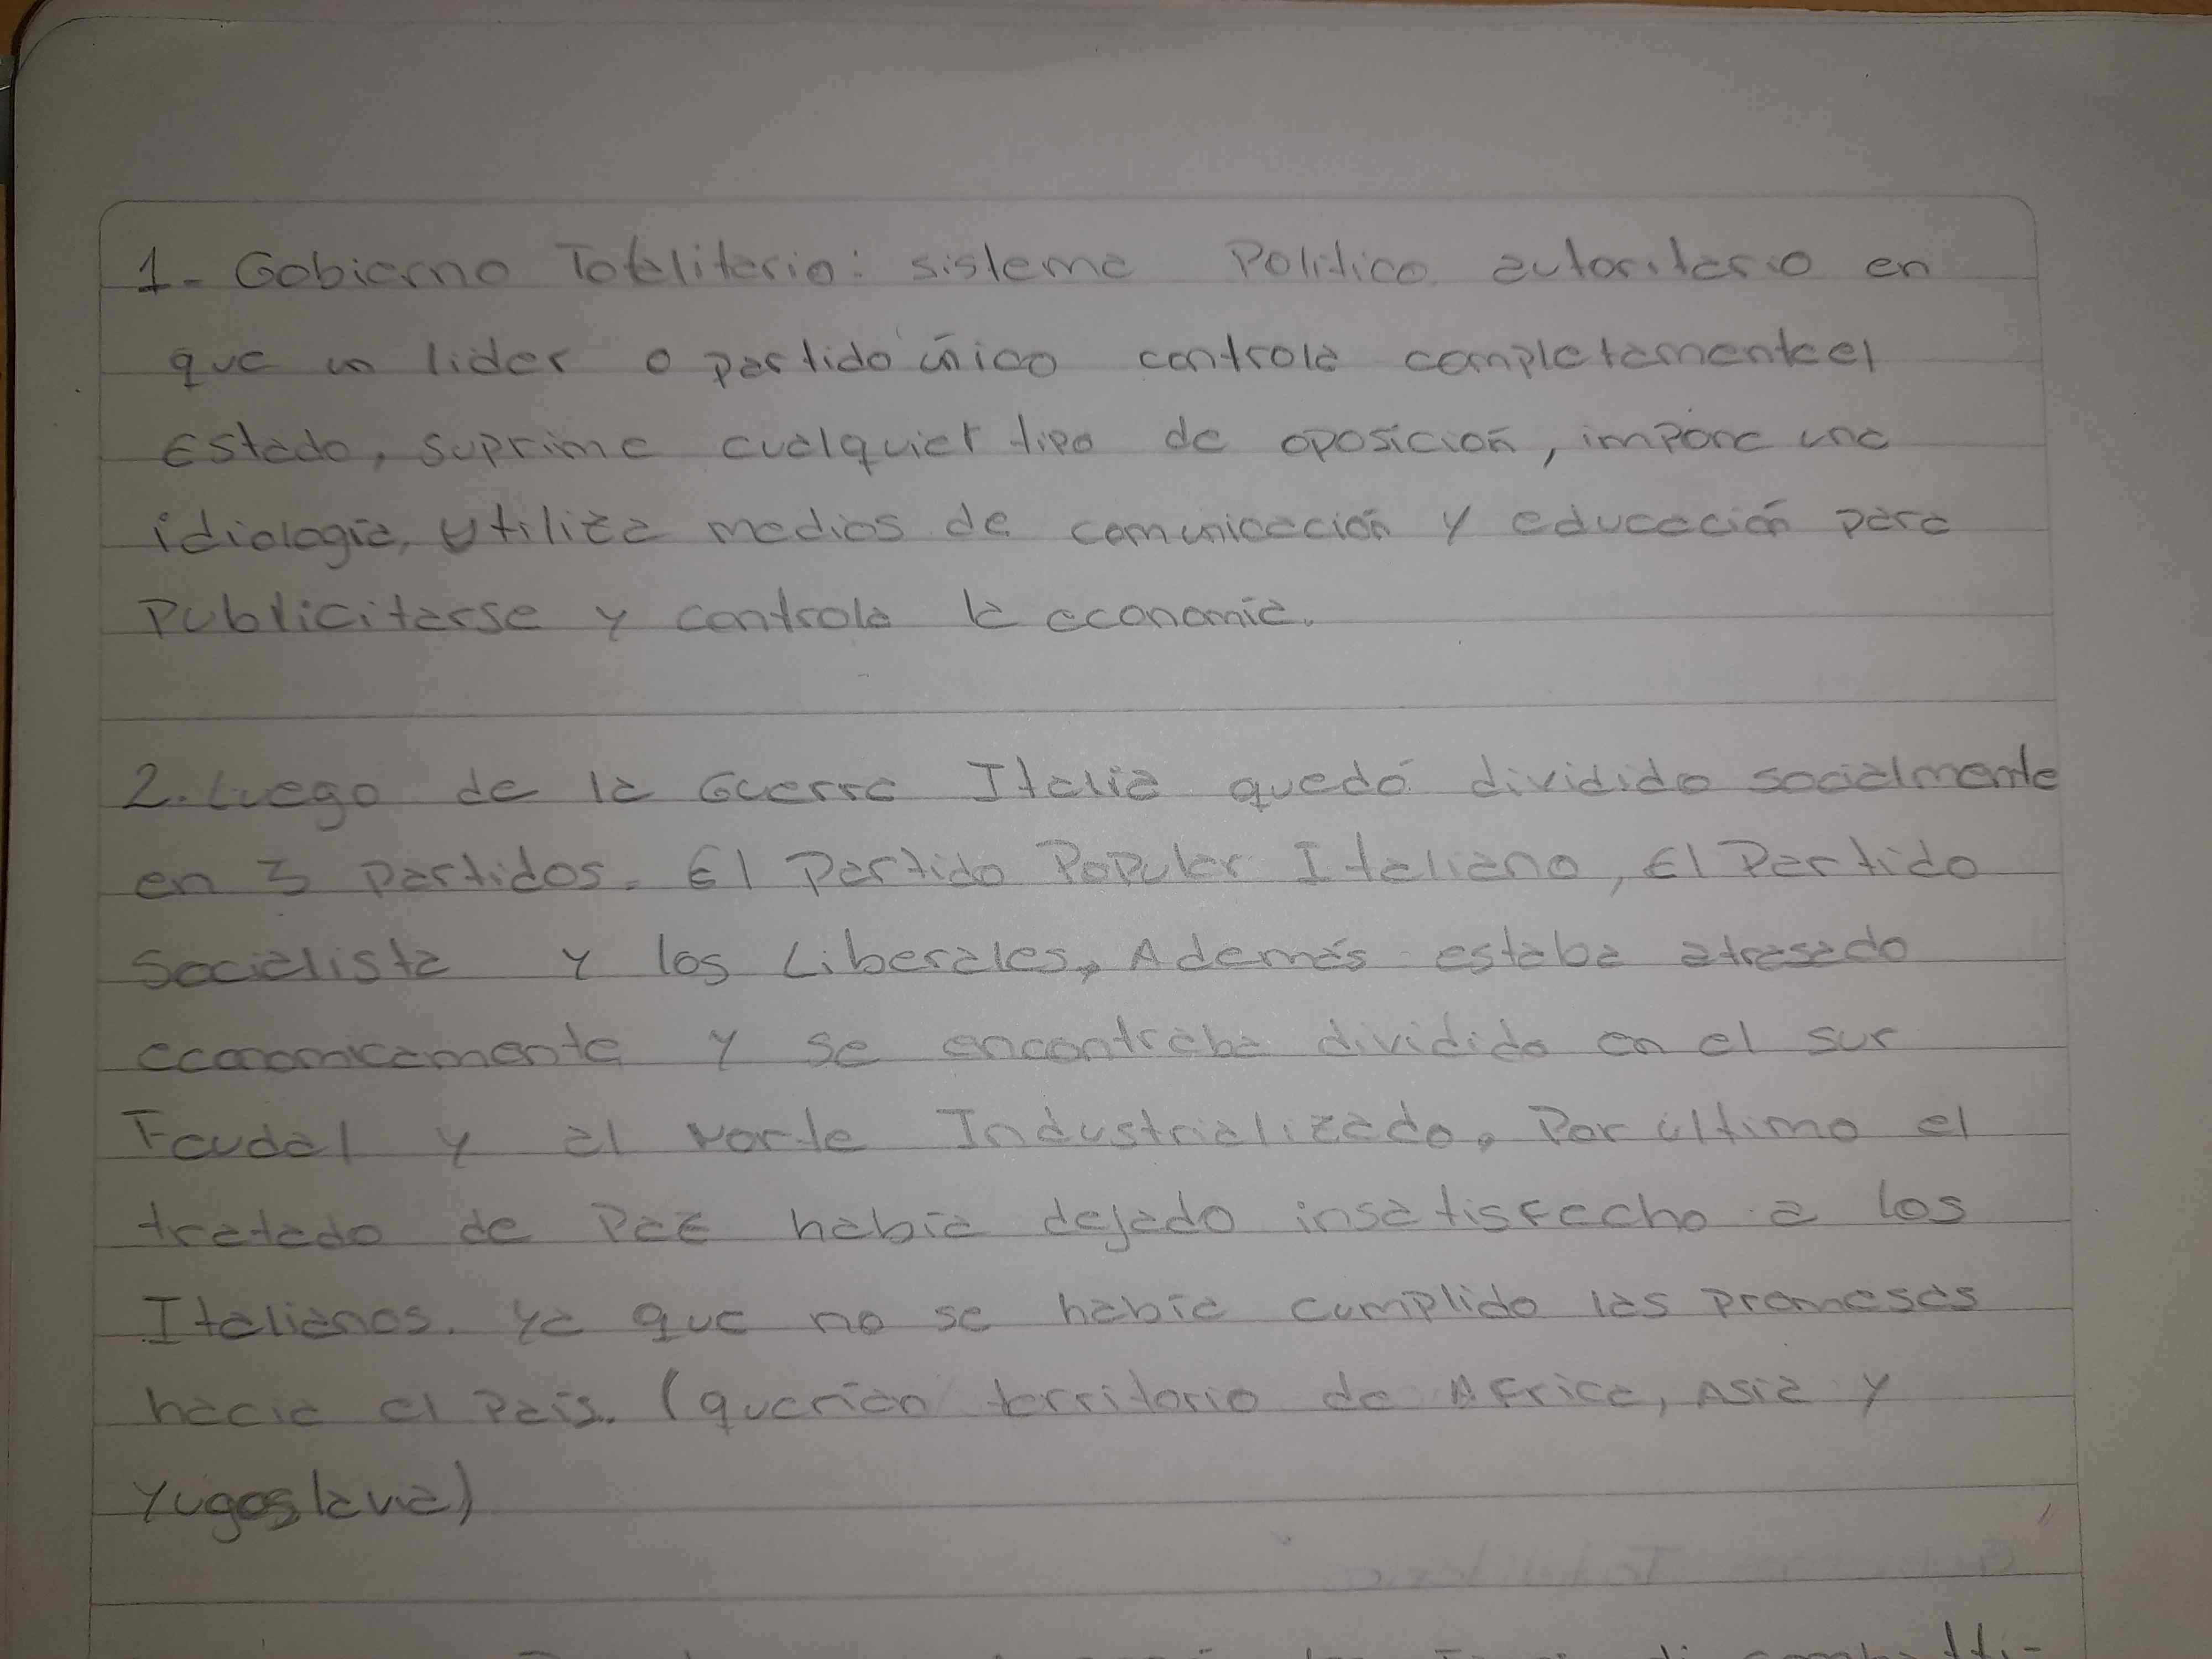 1- Gobierno Totalitario: sistema Político autoritario en
que un lider o partido único controla completamente el
Estado, suprime cualquier tipo de oposición, impone una
idiología, utiliza medios de comunicación y educación para
Publicitarse y controla la economía.
2. Luego de la Guerra Italia quedó dividido socialmente
en 3 partidos. El Partido Popular Italiano, El Partido
Socialista y los Liberales, Además estaba atrasado
economicamente y se encontraba dividido en el sur
Feudal y al Norte Industrializado. Por último el
tratado de Paz había dejado insatisfecho a los
Italianos. Ya que no se había cumplido las promesas
hacia el País. (querían territorio de Africa, Asia y
Yugoslavia)